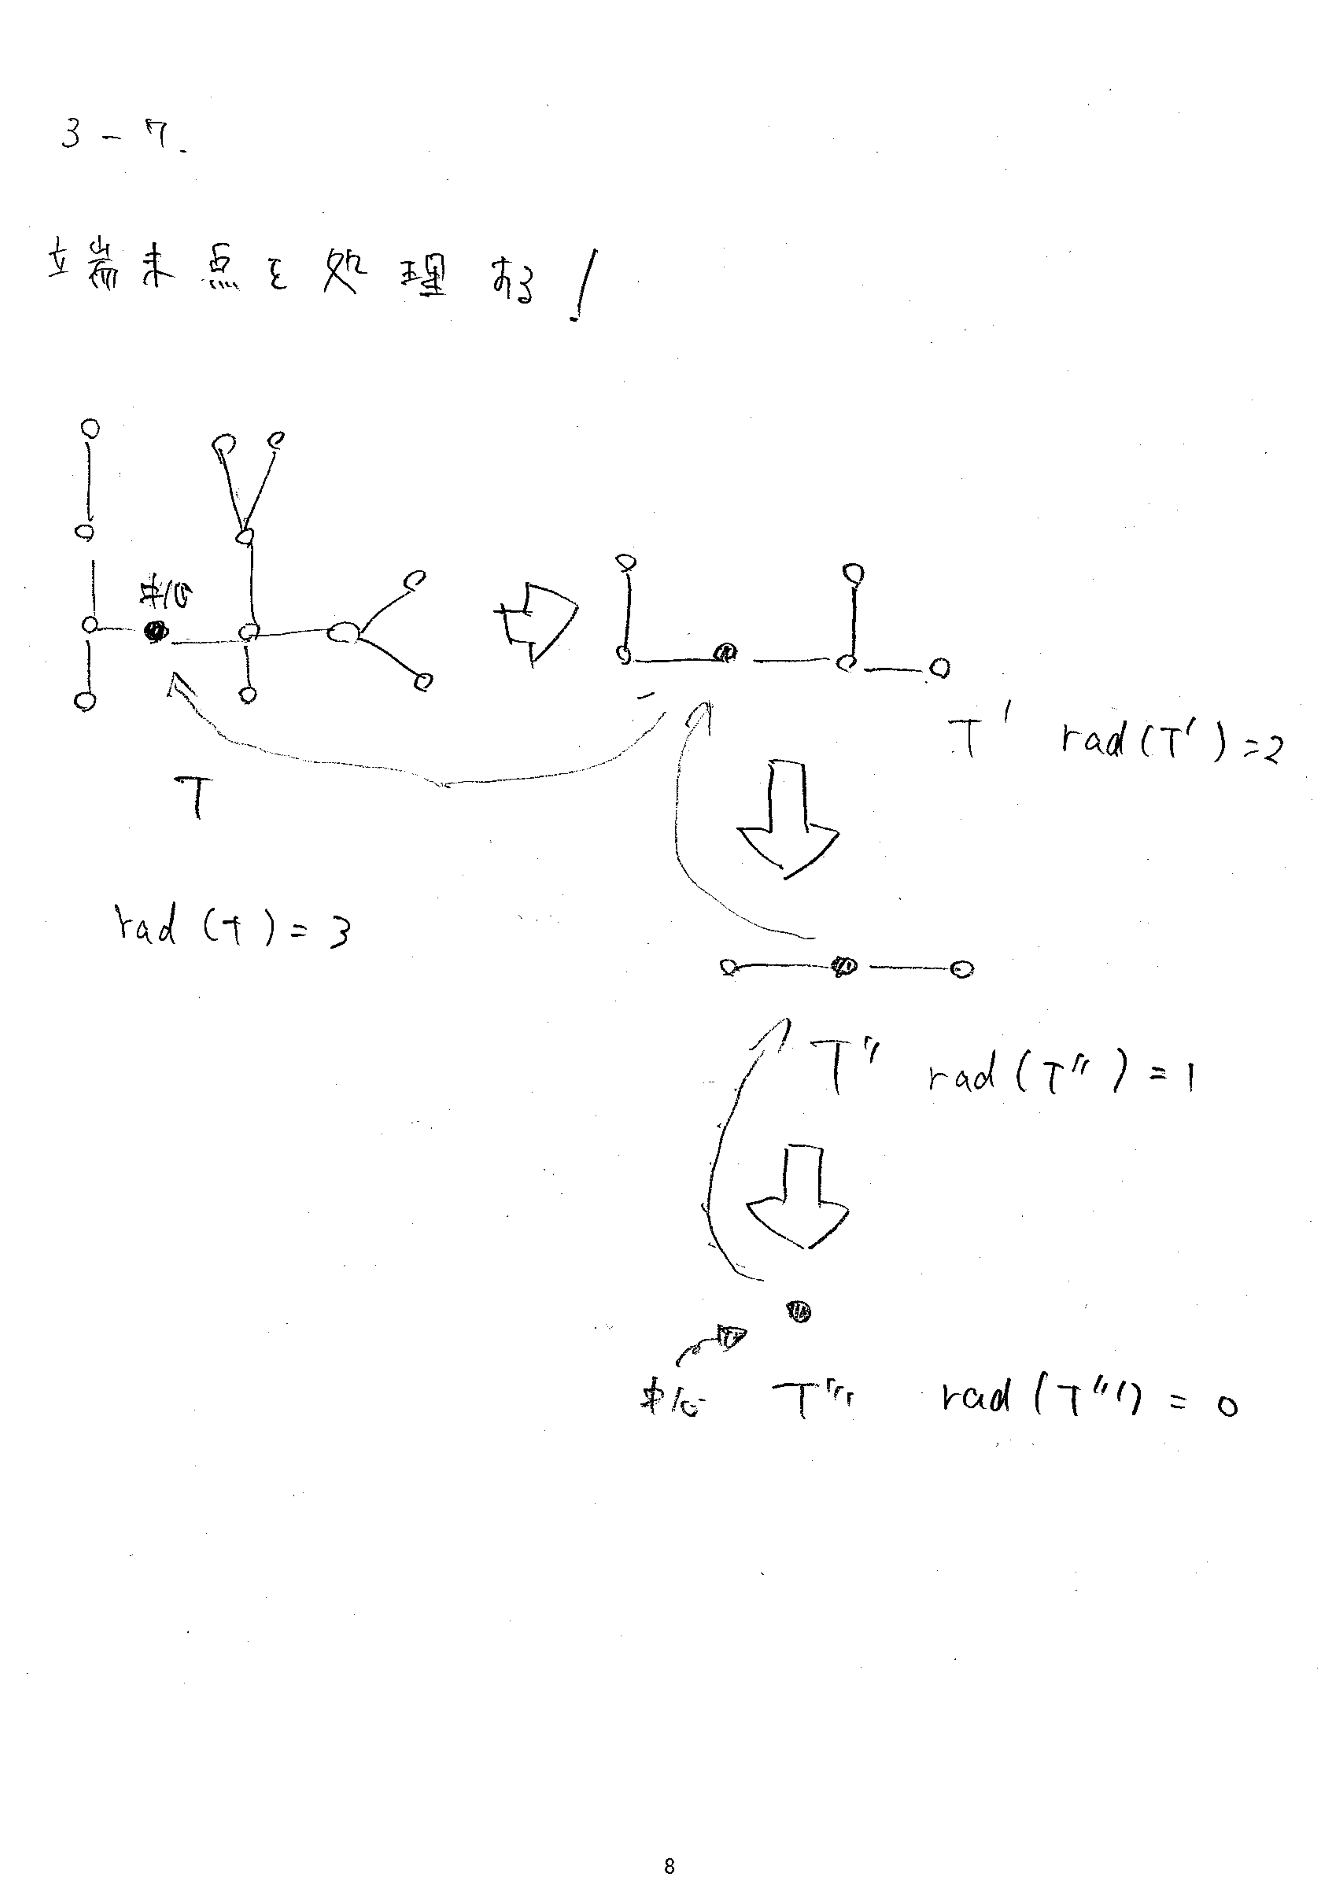 3-7.
端末点を処理する!
中心
T' rad(T')=2
T
rad(T)=3
T'' rad(T'')=1
中心 T''' rad(T''')=0
8